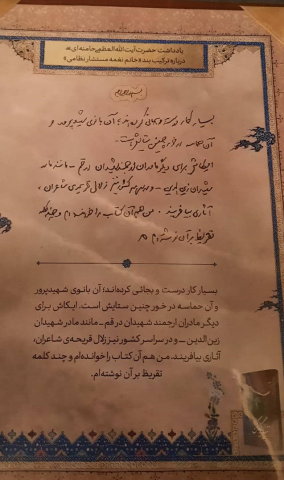 یادداشت حضرت آیت‌الله‌العظمی خامنه‌ای
درباره ترکیب‌بند «خانم نغمه مستشار نظامی»
بسیار کار درست و بجائی کرده‌اند؛ آن بانوی شهیدپرور و
آن حماسه در خور چنین ستایش است.
ایکاش برای دیگر مادران ارجمند شهیدان در قم - مانند مادر
شهیدان زین‌الدین - و در سراسر کشور نیز زلال قریحه‌ی شاعران،
آثاری بیافریند. من هم آن کتاب را خوانده‌ام و چند کلمه
تقریظ بر آن نوشته‌ام
بسیار کار درست و بجائی کرده‌اند؛ آن بانوی شهیدپرور
و آن حماسه در خور چنین ستایش است. ایکاش برای
دیگر مادران ارجمند شهیدان در قم ـ مانند مادر شهیدان
زین‌الدین ـ و در سراسر کشور نیز زلال قریحه‌ی شاعران،
آثاری بیافریند. من هم آن کتاب را خوانده‌ام و چند کلمه
تقریظ بر آن نوشته‌ام.